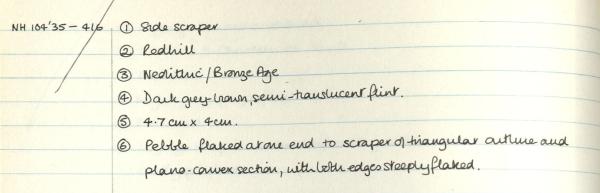 NH 104'35 - 416 ① Side scraper
② Redhill
③ Neolithic/Bronze Age
④ Dark grey-brown, semi-translucent flint.
⑤ 4.7 cm x 4cm.
⑥ Pebble flaked at one end to scraper of triangular outline and
plano-convex section, with both edges steeply flaked.